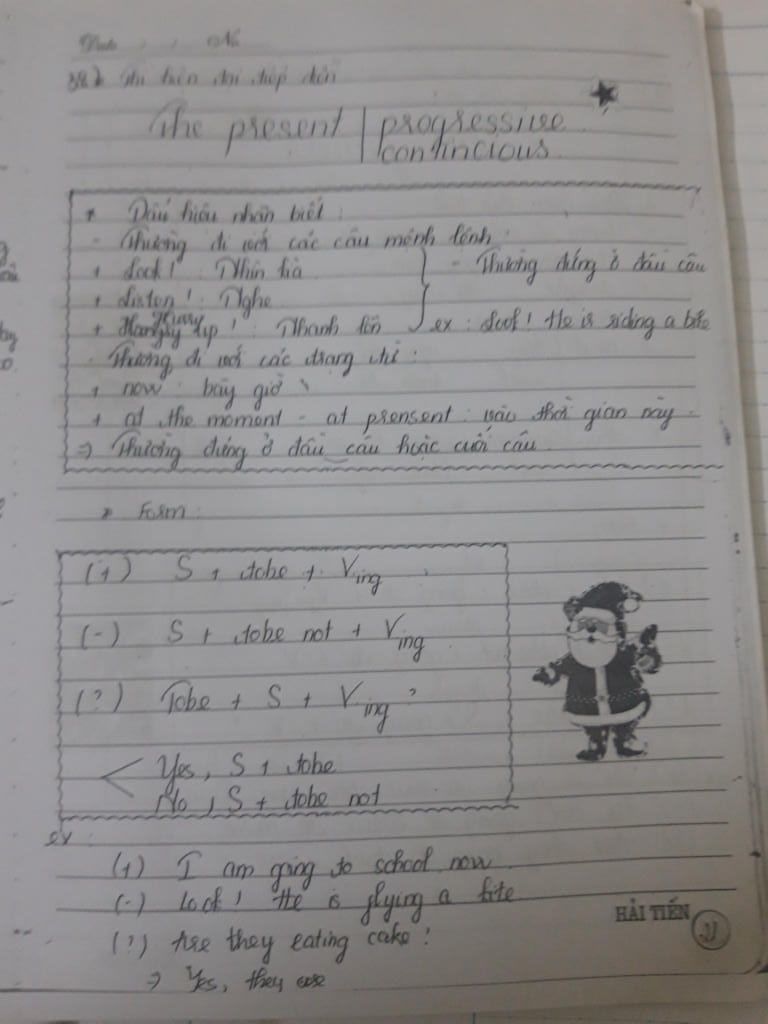 Date / / No
Thì hiện tại tiếp diễn
The present | progressive
contincious
* Dấu hiệu nhận biết :
- Thường đi với các câu mệnh lệnh :
+ Look ! : Nhìn kìa
- Thường đứng ở đầu câu
+ Listen ! : Nghe
+ Hurry up ! : Nhanh lên
ex : Look ! He is riding a bike
- Thường đi với các trạng từ :
+ now : bây giờ
+ at the moment - at prensent : vào thời gian này
=> Thường đứng ở đầu câu hoặc cuối câu
* Form :
(+) S + tobe + Ving
(-) S + tobe not + Ving
(?) Tobe + S + Ving ?
Yes, S + tobe
No , S + tobe not
ex :
(+) I am going to school now
(-) Look ! He is flying a kite
(?) Are they eating cake ?
=> Yes, they are
HẢI TIẾN
21